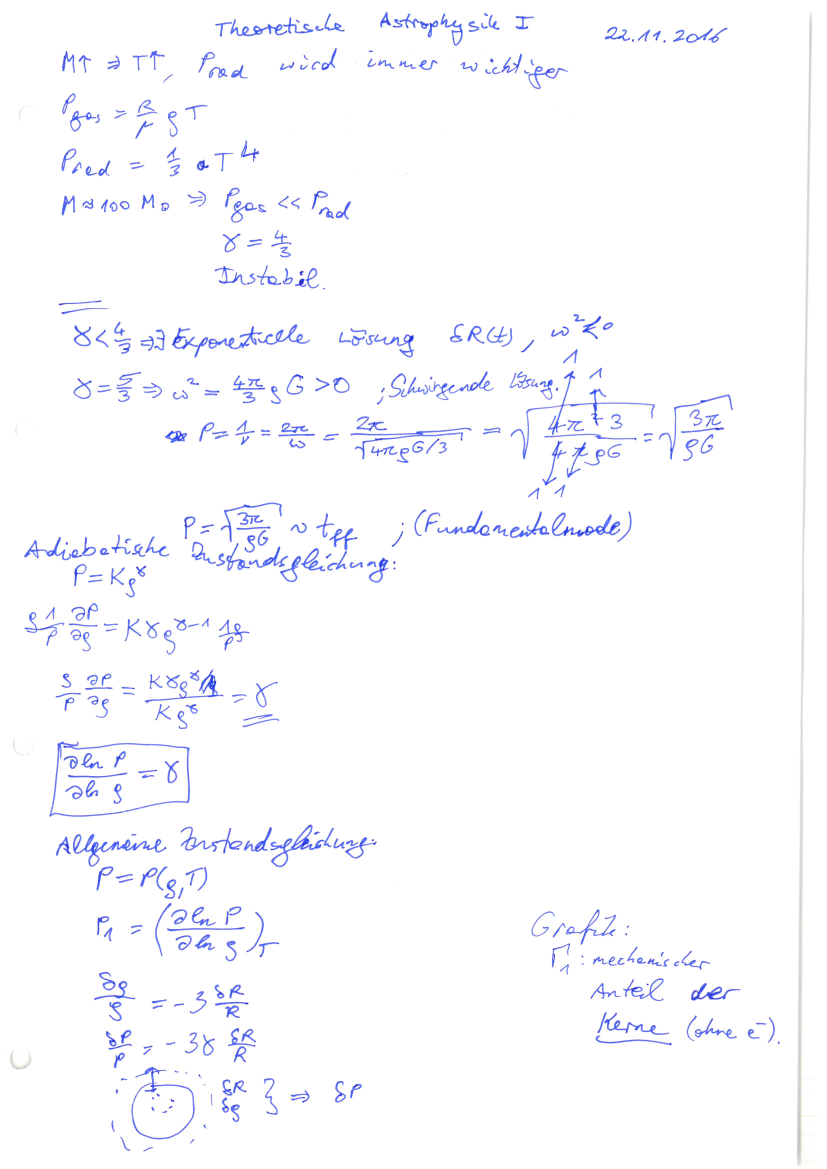 Theoretische Astrophysik I 22.11.2016
M↑ ⇒ T↑, P_rad wird immer wichtiger
P_gas = R/μ ρT
P_rad = 1/3 aT^4
M ≈ 100 M⊙ ⇒ P_gas << P_rad
γ = 4/3
Instabil.
γ < 4/3 ⇒ ∃ Exponentielle Lösung δR(t), ω² < 0
γ = 5/3 ⇒ ω² = 4π/3 ρG > 0 ; Schwingende Lösung.
P = 1/ν = 2π/ω = 2π/√(4πρG/3) = √(4π²3/4πρG) = √(3π/ρG)
1 1
1 1
P = √(3π/ρG) ~ t_ff ; (Fundamentalmode)
Adiabatische Zustandsgleichung:
P = Kρ^γ
ρ 1/P ∂P/∂ρ = Kγρ^(γ-1) 1ρ/P
ρ/P ∂P/∂ρ = Kγρ^γ/Kρ^γ = γ
∂ln P/∂ln ρ = γ
Allgemeine Zustandsgleichung:
P = P(ρ,T)
Γ_1 = (∂ln P/∂ln ρ)_T
δρ/ρ = -3 δR/R
δP/P = -3γ δR/R
δR
δρ } ⇒ δP
Grafik:
Γ_1: mechanischer
Anteil der
Kerne (ohne e⁻).